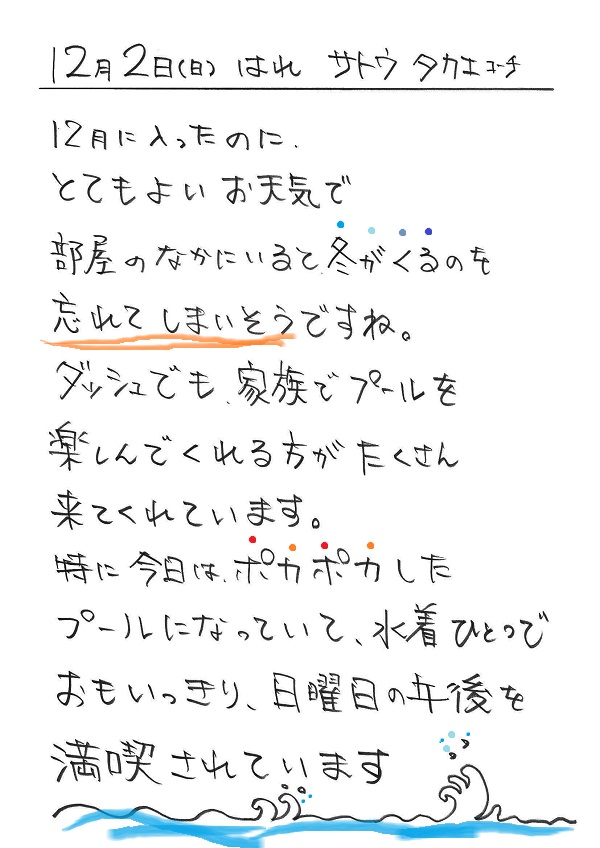 12月2日(日) はれ サトウ タカエ コーチ
12月に入ったのに、
とてもよい お天気で
部屋のなかにいると、冬がくるのを
忘れてしまいそうですね。
ダッシュでも、家族でプールを
楽しんでくれる方が たくさん
来てくれています。
特に 今日は、ポカポカした
プールになっていて、水着ひとつで
おもいっきり、日曜日の午後を
満喫されています